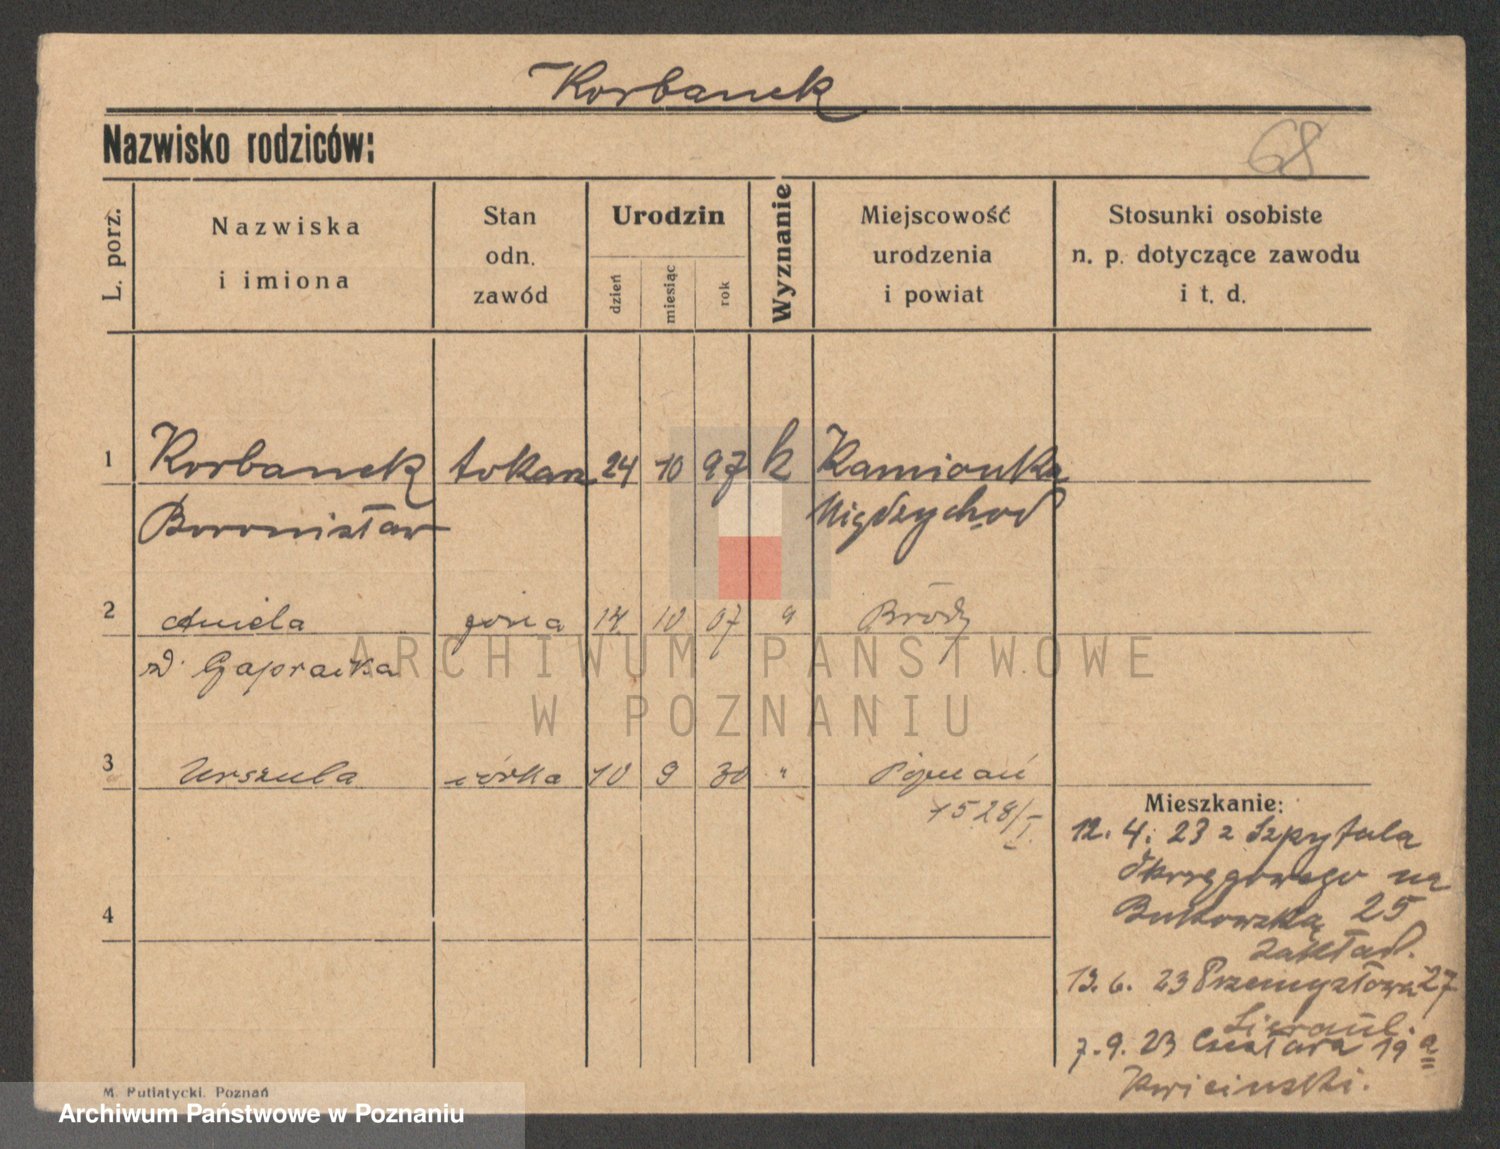 Korbanek
Nazwisko rodziców:
68
L. porz.
Nazwiska
i imiona
Stan
odn.
zawód
Urodzin
dzień
miesiąc
rok
Wyznanie
Miejscowość
urodzenia
i powiat
Stosunki osobiste
n. p. dotyczące zawodu
i t. d.
1 Korbanek tokarz 24 10 97 k Kamionka
Boronisław Międzychod
2 Aniela żona 14 10 07 " Brody
z d.
3 Urszula córka 10 9 30 " Poznań
1528/I.
Mieszkanie:
12. 4. 23 z Szpytala
Okręgowego na
Bukowską 25
zakład.
13. 6. 23 Przemysłowa 27
7. 9. 23 19 a
Kwicinski.
4
M. Putiatycki, Poznań
ARCHIWUM PAŃSTWOWE
W POZNANIU
Archiwum Państwowe w Poznaniu